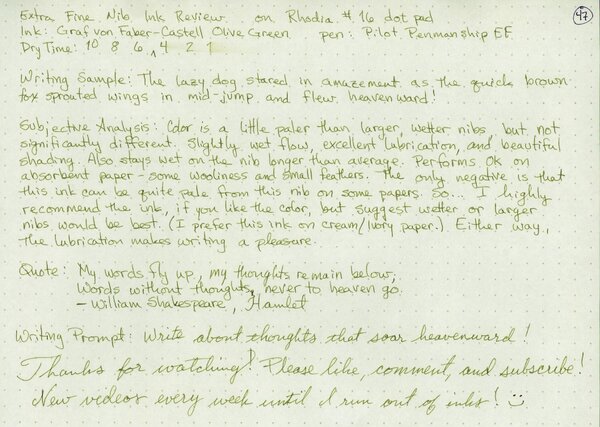 Extra Fine Nib Ink Review on Rhodia #16 dot pad
47
Ink: Graf von Faber-Castell Olive Green pen: Pilot Penmanship EF
Dry Time: 10 8 6 4 2 1
Writing Sample: The lazy dog stared in amazement as the quick brown
fox sprouted wings in mid-jump and flew heavenward!
Subjective Analysis: Color is a little paler than larger, wetter nibs, but not
significantly different. Slightly wet flow, excellent lubrication, and beautiful
shading. Also stays wet on the nib longer than average. Performs Ok on
absorbent paper - some wooliness and small feathers. The only negative is that
this ink can be quite pale from this nib on some papers. So... I highly
recommend the ink, if you like the color, but suggest wetter or larger
nibs would be best. (I prefer this ink on cream/ivory paper.) Either way,
the lubrication makes writing a pleasure.
Quote: My words fly up, my thoughts remain below;
Words without thoughts, never to heaven go.
- William Shakespeare, Hamlet
Writing Prompt: Write about thoughts that soar heavenward!
Thanks for watching! Please like, comment, and subscribe!
New videos every week until I run out of inks!